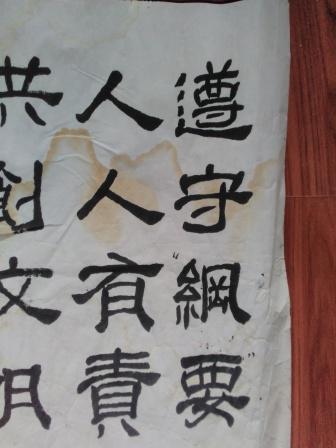 遵守綱要
人人有責
共創文明